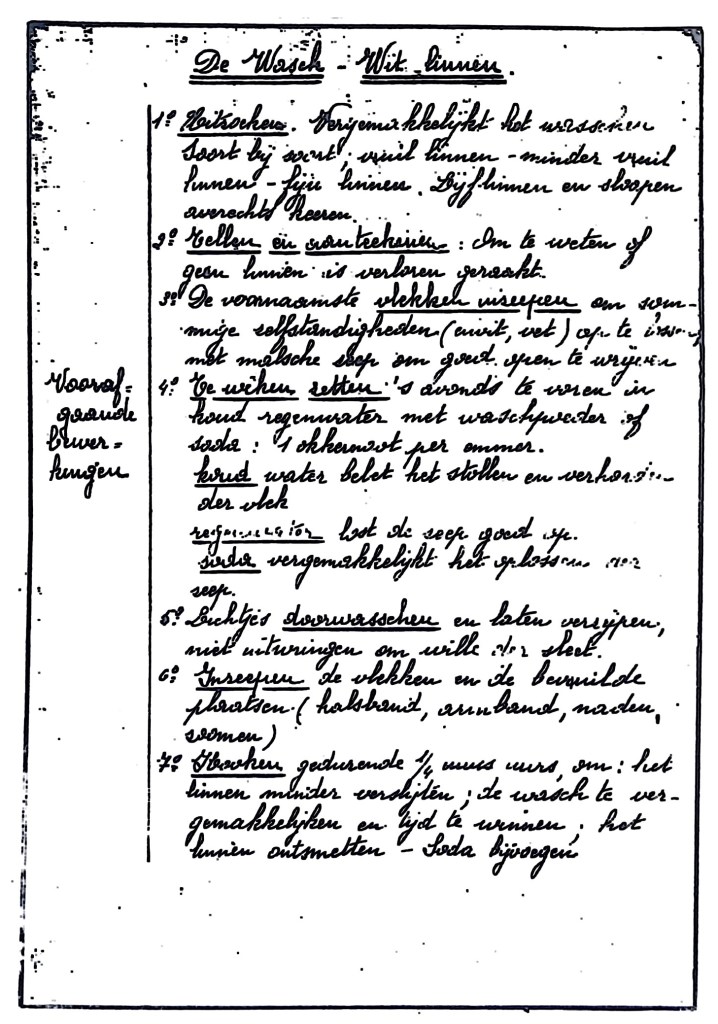 De Wasch - Wit linnen.
1º Uitzoeken. Vergemakkelijkt het wasschen
Soort bij soort; vuil linnen - minder vuil
linnen - fijn linnen. Lijflinnen en sloopen
averechts keeren.
2º Tellen en aanteekenen: Om te weten of
geen linnen is verloren geraakt.
3º De voornaamste vlekken inzeepen om som-
mige zelfstandigheden (eiwit, vet) op te
met malsche zeep om goed open te wrijven
Vooraf=
gaande
bewer=
kingen
4º Te weken zetten 's avonds te voren in
koud regenwater met waschpoeder of
soda: 1 okkernoot per emmer.
koud water belet het stollen en
der vlek
regenwater lost de zeep goed op.
soda vergemakkelijkt het oplossen der
zeep.
5º Lichtjes doorwasschen en laten verzijpen,
niet uitwringen om wille der sleet.
6º Inzeepen de vlekken en de bevuilde
plaatsen (halsband, armband, naden,
zoomen)
7º Kooken gedurende 1/4 uurs, om: het
linnen minder verslijten; de wasch te ver-
gemakkelijken en tijd te winnen; het
linnen ontsmetten - Soda bijvoegen